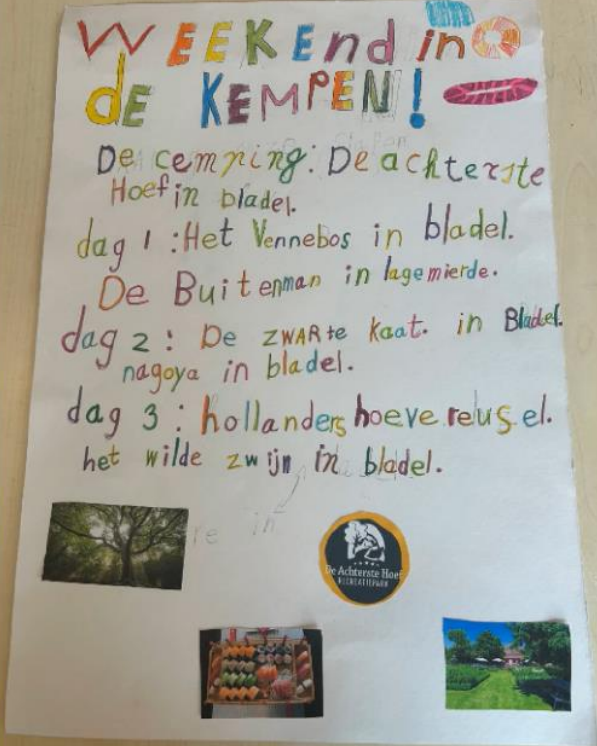 WEEKEnd in
dE KEMPEN!
De cemping: De achterste
Hoef in bladel.
dag 1 : Het Vennebos in bladel.
De Buitenman in lage mierde.
dag 2 : De ZWARte Kaat. in Bladel.
nagoya in bladel.
dag 3 : hollanders hoeve reusel.
het wilde zwijn in bladel.
De Achterste Hoef
RECREATIEPARK